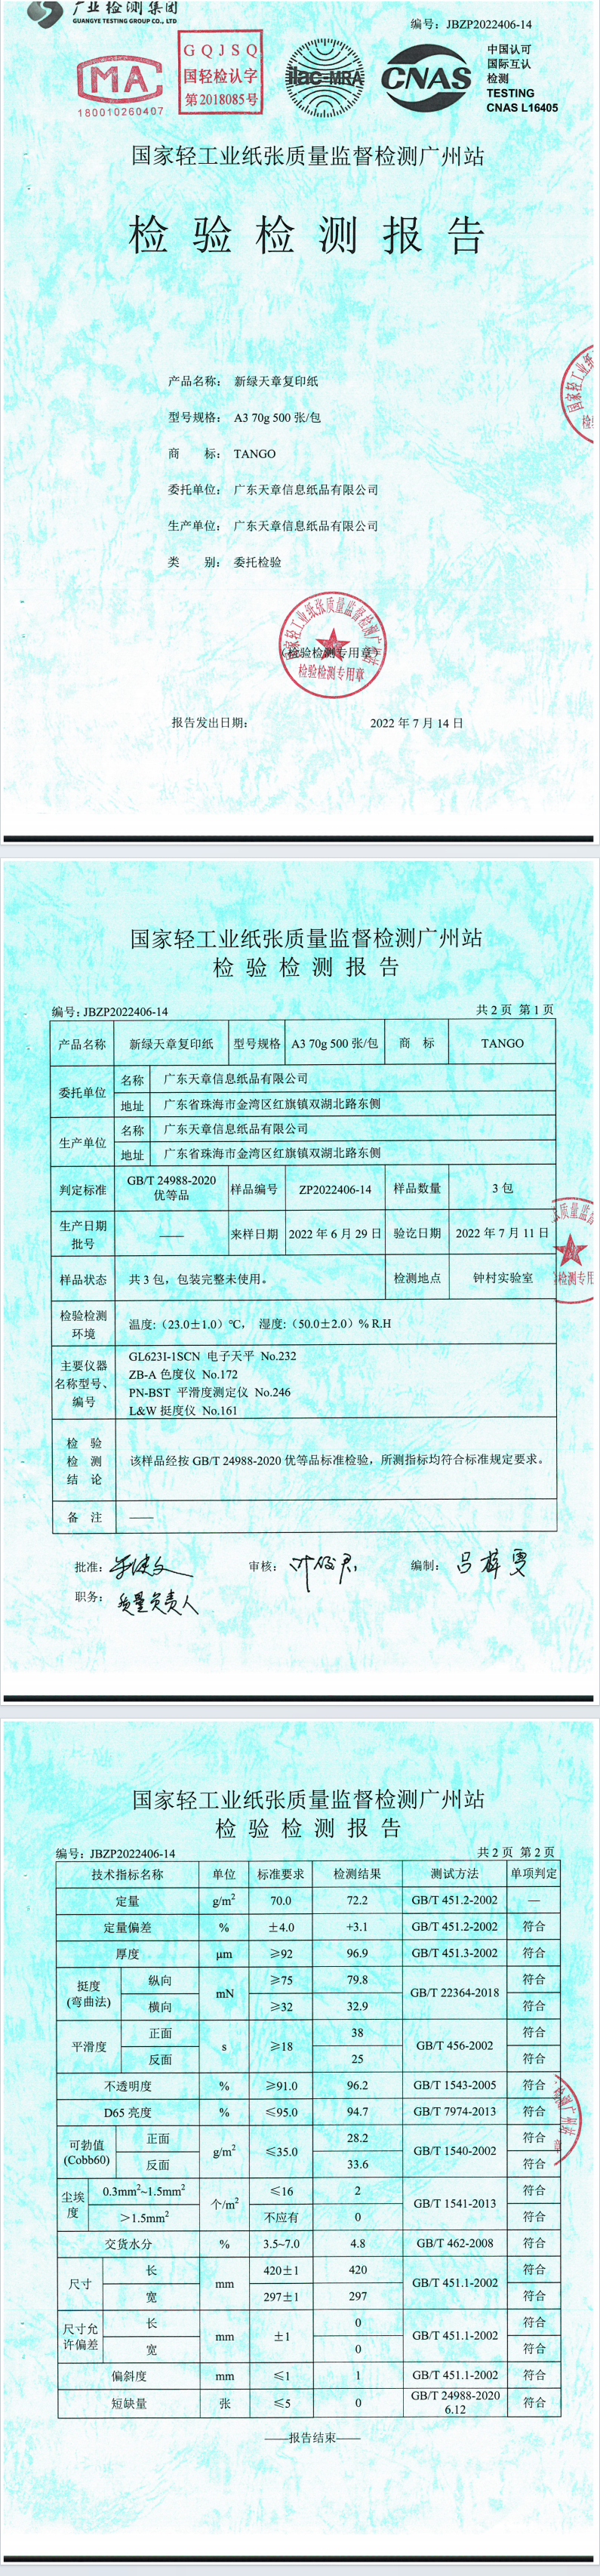 广业检测集团
GUANGYE TESTING GROUP CO., LTD
编号：JBZP2022406-14
MA
180010260407
GQJSQ
国轻检认字
第2018085号
ilac-MRA
CNAS
中国认可
国际互认
检测
TESTING
CNAS L16405
国家轻工业纸张质量监督检测广州站
检验检测报告
产品名称： 新绿天章复印纸
型号规格： A3 70g 500 张/包
商 标： TANGO
委托单位： 广东天章信息纸品有限公司
生产单位： 广东天章信息纸品有限公司
类 别： 委托检验
国家轻工业纸张质量监督检测广州站
（检验检测专用章）
检验检测专用章
报告发出日期： 2022 年 7 月 14 日
国家轻工业纸张质量监督检测广州站
检验检测报告
编号: JBZP2022406-14 共 2 页 第 1 页
产品名称 新绿天章复印纸 型号规格 A3 70g 500 张/包 商 标 TANGO
委托单位 名称 广东天章信息纸品有限公司
地址 广东省珠海市金湾区红旗镇双湖北路东侧
生产单位 名称 广东天章信息纸品有限公司
地址 广东省珠海市金湾区红旗镇双湖北路东侧
判定标准 GB/T 24988-2020 优等品 样品编号 ZP2022406-14 样品数量 3 包
生产日期批号 —— 来样日期 2022 年 6 月 29 日 验讫日期 2022 年 7 月 11 日
样品状态 共 3 包，包装完整未使用。 检测地点 钟村实验室
检验检测环境 温度:（23.0±1.0）℃， 湿度:（50.0±2.0）% R.H
主要仪器名称型号、编号
GL623I-1SCN 电子天平 No.232
ZB-A 色度仪 No.172
PN-BST 平滑度测定仪 No.246
L&W 挺度仪 No.161
检验检测结论 该样品经按 GB/T 24988-2020 优等品标准检验，所测指标均符合标准规定要求。
备 注 ——
批准: 审核: 编制: 吕梓雯
职务: 质量负责人
国家轻工业纸张质量监督检测广州站
检验检测报告
编号: JBZP2022406-14 共 2 页 第 2 页
技术指标名称 单位 标准要求 检测结果 测试方法 单项判定
定量 g/m² 70.0 72.2 GB/T 451.2-2002 —
定量偏差 % ±4.0 +3.1 GB/T 451.2-2002 符合
厚度 μm ≥92 96.9 GB/T 451.3-2002 符合
挺度(弯曲法) 纵向 mN ≥75 79.8 GB/T 22364-2018 符合
横向 ≥32 32.9 符合
平滑度 正面 s ≥18 38 GB/T 456-2002 符合
反面 25 符合
不透明度 % ≥91.0 96.2 GB/T 1543-2005 符合
D65 亮度 % ≤95.0 94.7 GB/T 7974-2013 符合
可勃值(Cobb60) 正面 g/m² ≤35.0 28.2 GB/T 1540-2002 符合
反面 33.6 符合
尘埃度 0.3mm²~1.5mm² 个/m² ≤16 2 GB/T 1541-2013 符合
＞1.5mm² 不应有 0 符合
交货水分 % 3.5~7.0 4.8 GB/T 462-2008 符合
尺寸 长 mm 420±1 420 GB/T 451.1-2002 符合
宽 297±1 297 符合
尺寸允许偏差 长 mm ±1 0 GB/T 451.1-2002 符合
宽 0 符合
偏斜度 mm ≤1 1 GB/T 451.1-2002 符合
短缺量 张 ≤5 0 GB/T 24988-2020 6.12 符合
——报告结束——